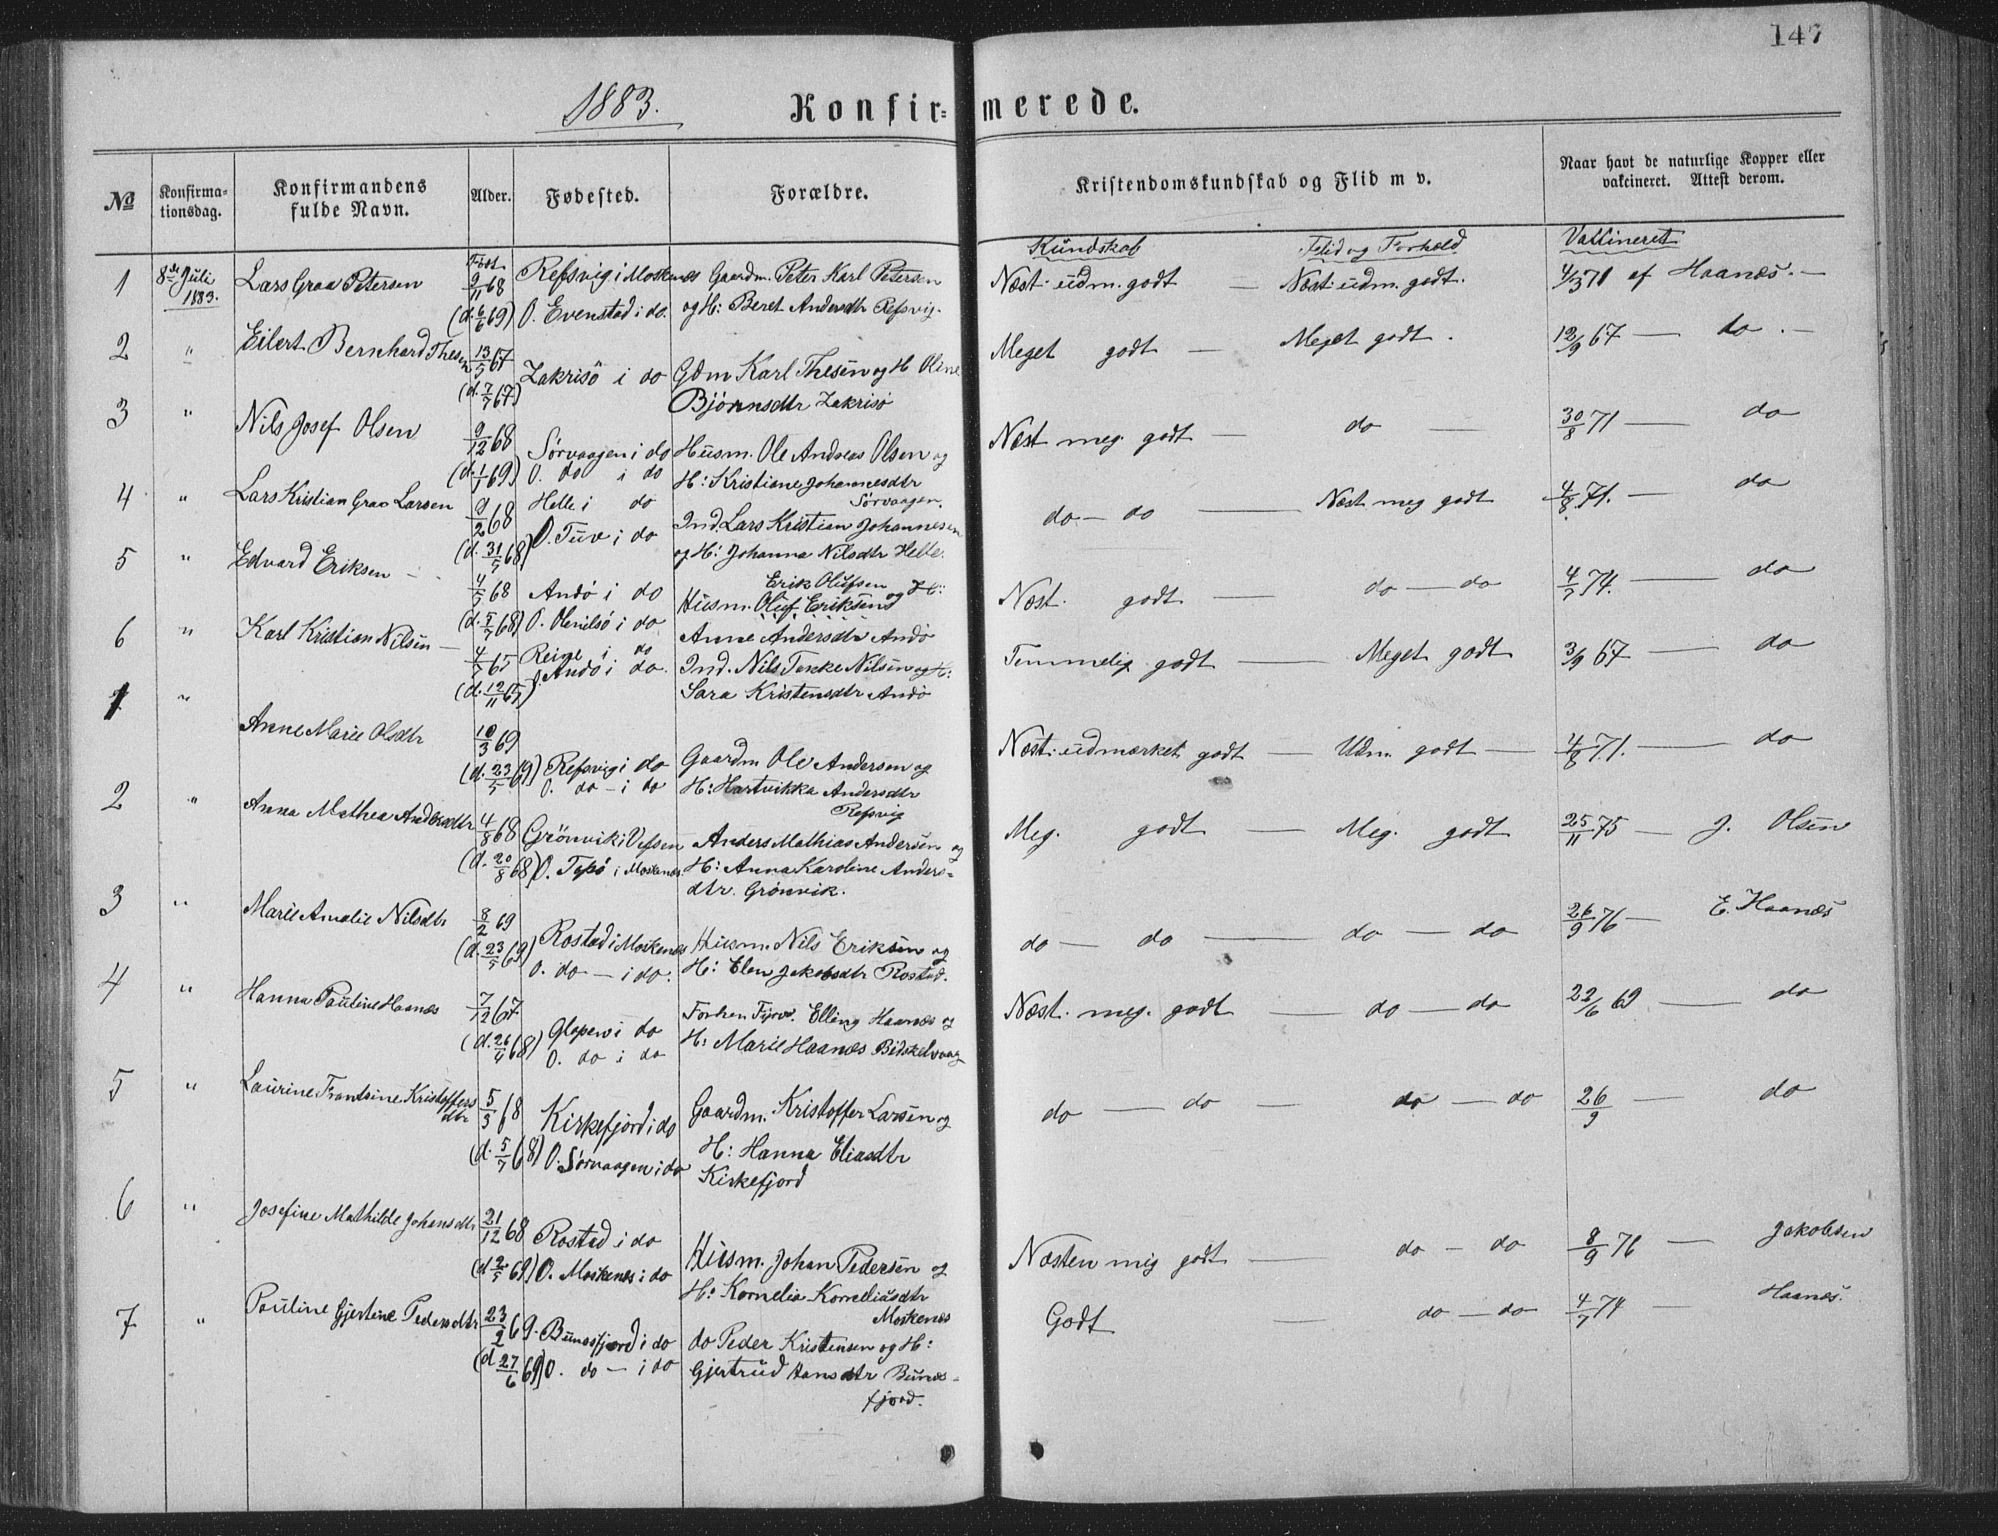 147
1883. Konfir=merede.
No Konfirma=tionsdag. Konfirmandens fulde Navn. Alder. Fødested. Forældre. Kristendomskundskab og Flid m v. Naar havt de naturlige Kopper eller vakcineret. Attest derom.
Født Kundskab Flid og Forhold Vakcineret
1 8de Juli 1883. Lars Graa Petersen 9/11 68 Refsvig i Moskenes Gaardm. Peter Karl Petersen Næst: udm. godt — Næst: udm. godt. 4/3 71 af Haanæs. —
(d. 6/6 69) O. Evenstad i do. og H: Beret Andersdtr Refsvig.
2 " Eilert Bernhard Thesen 13/5 67 Zakrisö i do Gdm Karl Thesen og H Oline Meget godt — Meget godt. 12/9 67 — do. —
(d. 7/7 67) Björnsdtr Zakrisö
3 " Nils Josef Olsen 9/12 68 Sørvaagen i do Husm. Ole Andreas Olsen og Næst meg. godt — do — 30/8 71 — do
(d. 1/1 69) O. do i do H: Kristiane Johannesdtr
Sørvaagen.
4 " Lars Kristian Graa Larsen 9/2 68 Helle i do Ind. Lars Kristian Johannesen do — do — Næst meg godt 4/8 71. — do
(d. 31/5 68) O. Tuv i do og H: Johanna Nilsdtr Helle.
5 " Edvard Eriksen — 4/5 68 Andø i do Erik Olufsen Næst. godt — do — do 4/7 74. — do
Husm. Oluf Eriksen og H:
(d. 5/7 68) O. Olenilsö i do Anne Andersdtr Andö
6 " Karl Kristian Nilsen — 4/7 65 Reine i do Ind. Nils Tenke Nilsen og H: Temmelig godt — Meget godt 3/9 67 — do
(d. 12/11 65) O. Andö i do. Sara Kristensdtr Andö
1 " Anne Marie Olsdtr 10/3 69 Refsvig i do Gaardm Ole Andersen og Næst: udmærket godt — Udm. godt — 4/8 71. — do
(d. 23/5 69) O. do — i do H: Hartvikka Andersdtr
Refsvig
2 " Anna Mathea Andersdtr 4/8 68 Grönvik i Vefsen Anders Mathias Andersen og Meg. godt — Meg. godt 25/11 75 — J. Olsen
(d. 20/8 68) O. Tysö i Moskenæs. H: Anna Karoline Anders=
dtr. Grönvik.
3 " Marie Amalie Nilsdtr 8/2 69 Rostad i Moskenes Husm. Nils Eriksen og do — do — do — do 26/9 76 — E. Haanæs
(d. 23/5 69) O. do — i do. H: Elen Jakobsdtr Rostad.
4 " Hanna Pauline Haanæs 7/12 67 Glapen i do Forhen Fyrv. Elling Haanæs og Næst. meg. godt — do — do 22/6 69 — do
(d. 26/4 68) O. do i do H: Marie Haanæs
5 " Laurine Frantsine Kristoffersdtr 5/3 68 Kirkefjord i do Gaardm. Kristoffer Larsen og do — do — do — do 26/9 — do
(d. 5/7 68) O. Sørvaagen i do H: Hanna Eliasdtr
Kirkefjord
6 " Josefine Mathilde Johansdtr 21/12 68 Rostad i do Husm. Johan Pedersen og Næsten mig godt — do — do 8/9 76 — Jakobsen
(d. 2/5 69) O. Moskenæs i do H: Kornelia Korneliusdtr
Moskenæs
7 " Pauline Gjertine Pedersdtr 23/2 69. Bunæsfjord i do do Peder Kristensen og H: Godt — do — do 4/7 74 — Haanæs.
(d. 27/6 69) O. do — i do Gjertrud Hansdtr Bunæs=
fjord.